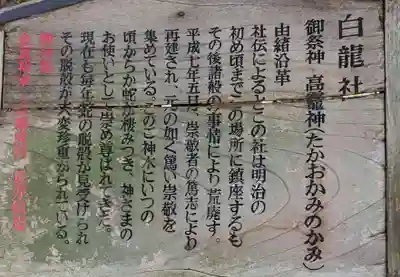 白龍社
御祭神 高龗神(たかおかみのかみ)
由緒沿革
社伝によるとこの社は明治の
初め頃までこの場所に鎮座するも
その後諸般の事情により荒廃す。
平成七年五月、崇敬者の篤志により
再建され、元の如く篤い崇敬を
集めている。このご神水にいつの
頃からか蛇が棲みつき、神さまの
お使いとして崇め尊ばれてきた。
現在も毎年蛇の脱殻が見受けられ
その脱殻が大変珍重がられている。